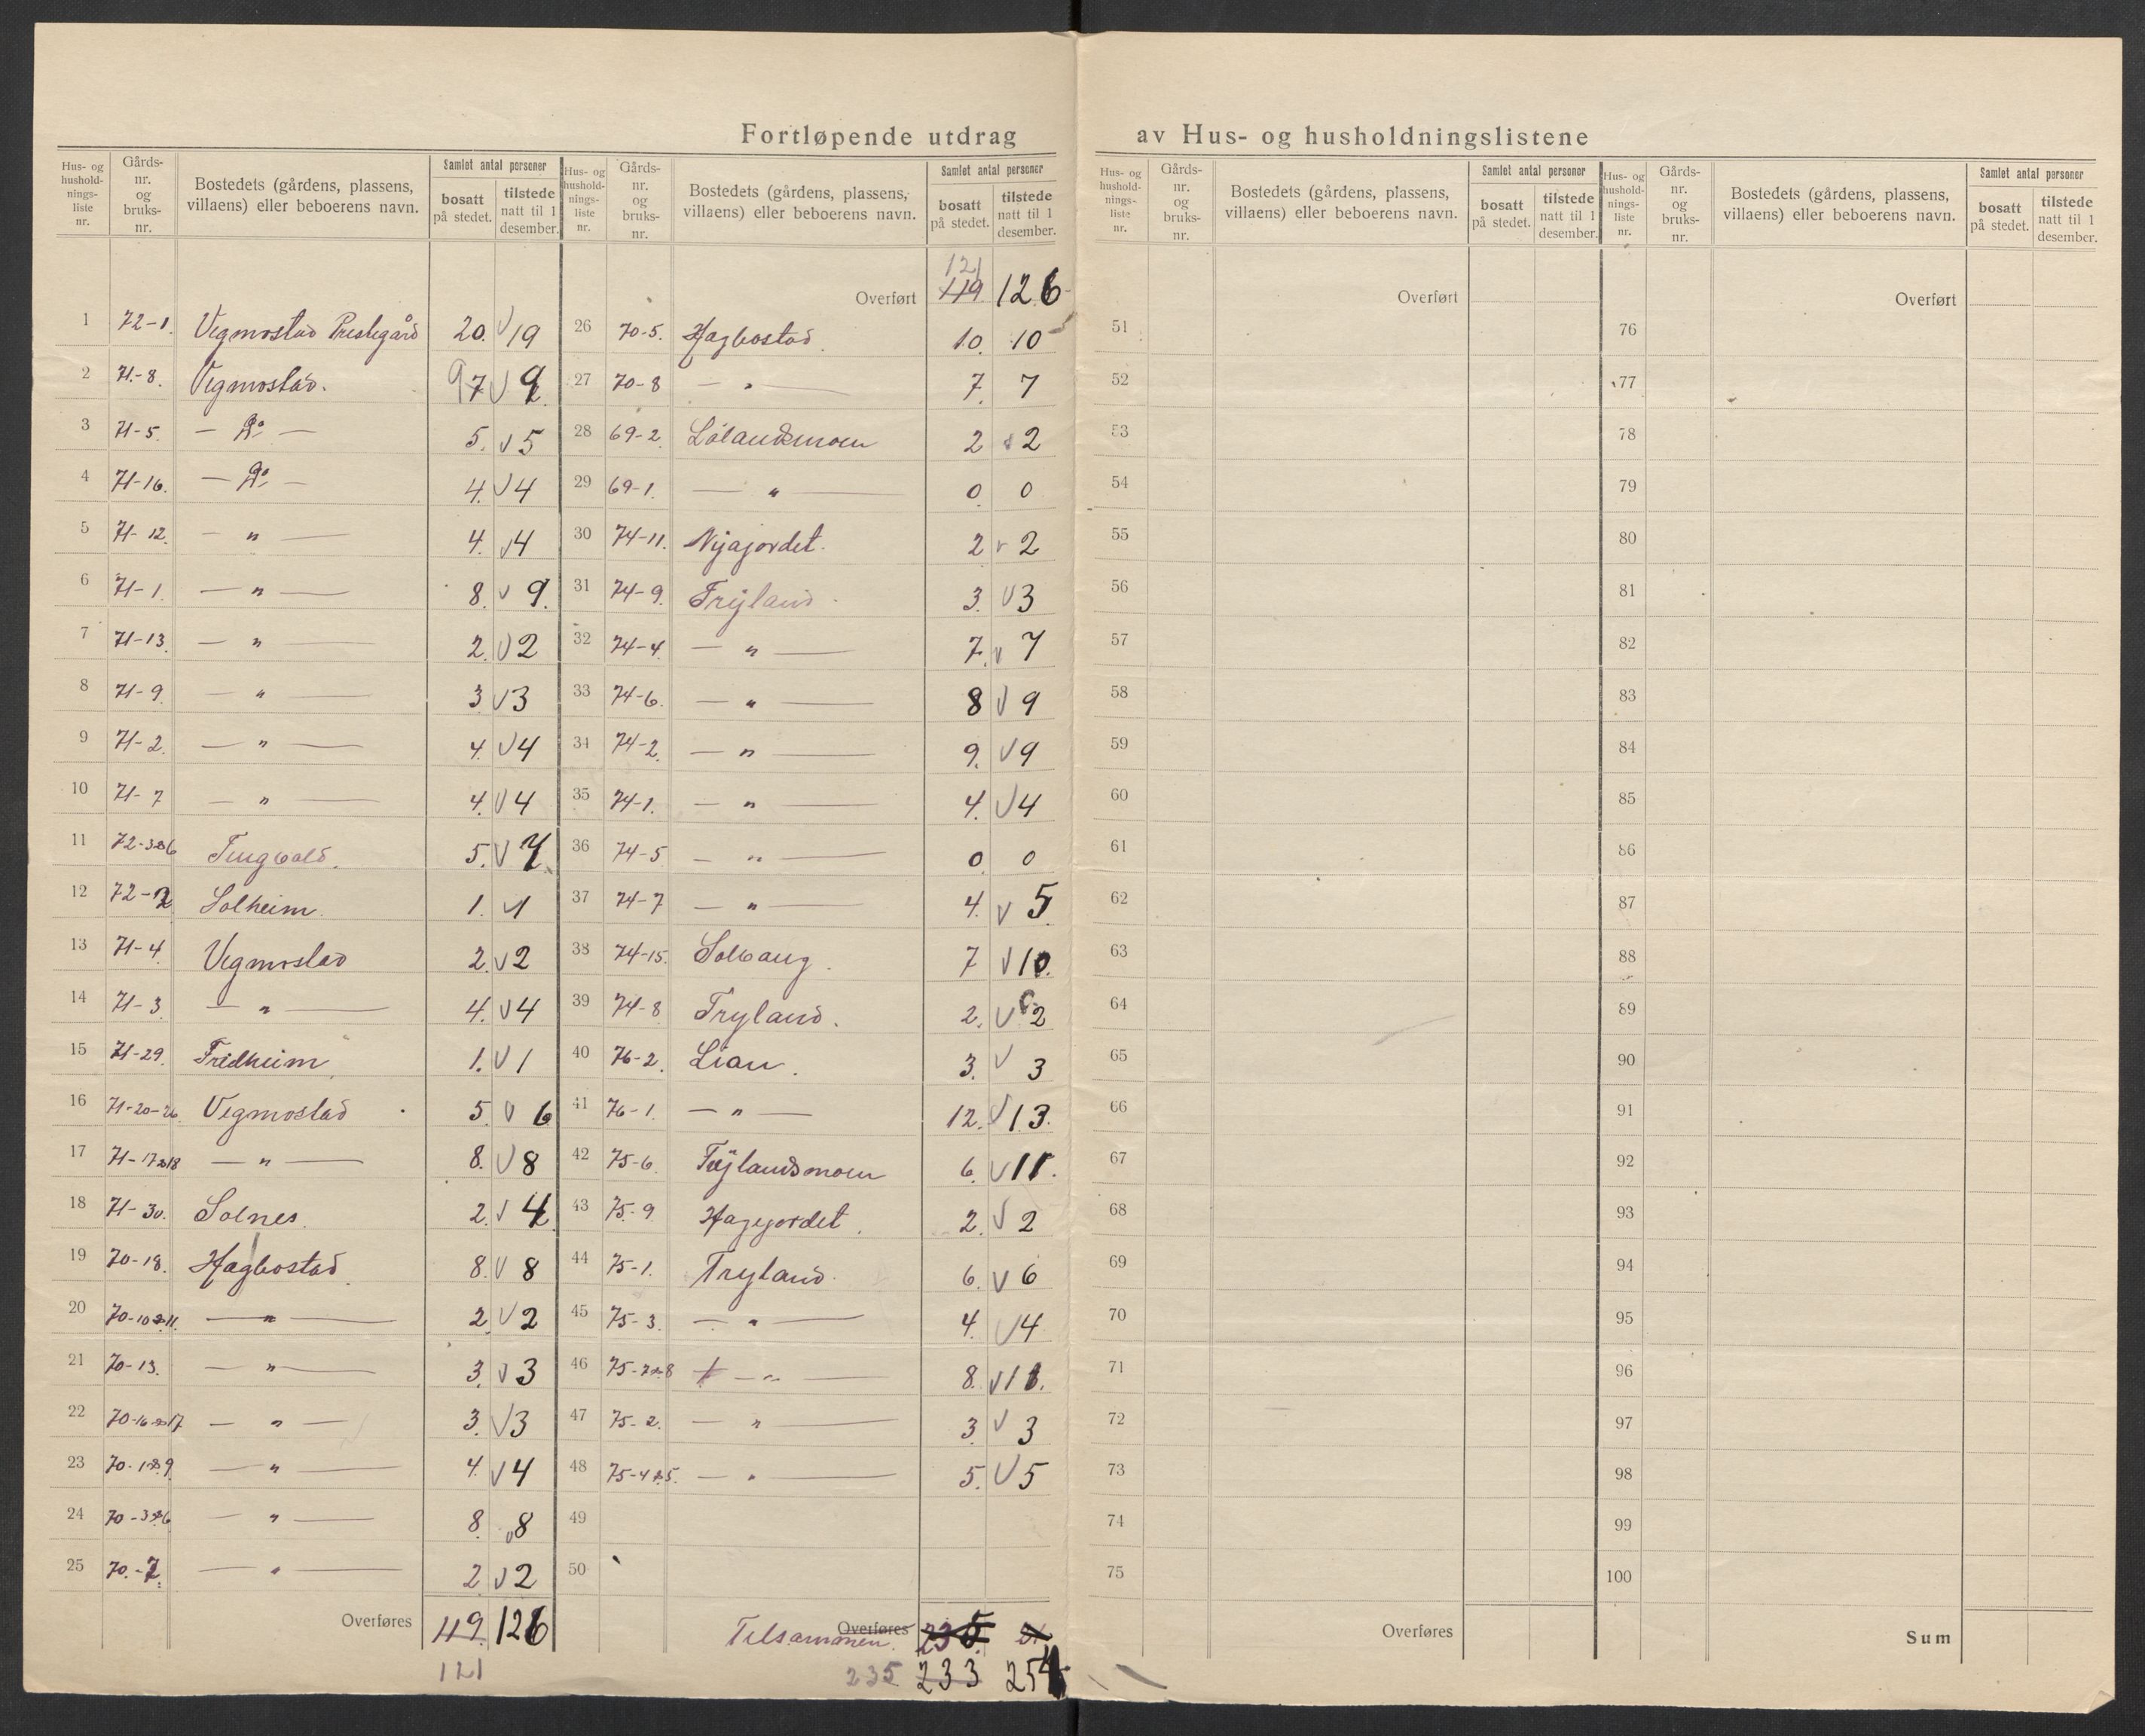 Fortløpende utdrag av Hus- og husholdningslistene
Hus- og hushold- nings- liste nr. | Gårds- nr. og bruks- nr. | Bostedets (gårdens, plassens, villaens) eller beboerens navn. | Samlet antal personer | bosatt på stedet. | tilstede natt til 1 desember.
1 72-1. Vegmostad Prestegård 20. 19
2 71-8. Vegmostad. 9 7 9
3 71-5. — Do — 5. 5
4 71-16. — Do — 4. 4
5 71-12. — " — 4. 4
6 71-1. — " — 8. 9.
7 71-13. — " — 2. 2
8 71-9. — " — 3 3
9 71-2. — " — 4. 4
10 71-7 — " — 4. 4
11 72-3&6 Tingvold. 5. 7
12 72-2 Solheim. 1. 1
13 71-4. Vegmostad 2. 2
14 71-3. — " — 4. 4
15 71-29. Fridheim 1. 1
16 71-20-26. Vegmostad 5. 6
17 71-17&18 — " — 8. 8
18 71-30. Solnes. 2. 4
19 70-18. Hægbostad. 8. 8
20 70-10&11. — " — 2. 2
21 70-13. — " — 3. 3
22 70-16&17 — " — 3. 3
23 70-1&9 — " — 4. 4
24 70-3&6 — " — 8. 8
25 70-7. — " — 2. 2
Overføres 119. 126
121
Hus- og hushold- nings- liste nr. | Gårds- nr. og bruks- nr. | Bostedets (gårdens, plassens, villaens) eller beboerens navn. | Samlet antal personer | bosatt på stedet. | tilstede natt til 1 desember.
121
Overført 119. 126
26 70-5. Hægbostad. 10. 10
27 70-8 — " — 7. 7
28 69-2. Lølandsmoen 2 2
29 69-1. — " — 0. 0
30 74-11. Nyajordet. 2 2
31 74-9. Tryland. 3. 3
32 74-4. — " — 7. 7
33 74-6. — " — 8 9
34 74-2. — " — 9. 9
35 74-1. — " — 4. 4
36 74-5 — " — 0. 0
37 74-7 — " — 4. 5.
38 74-15. Solvang. 7 10.
39 74-8 Tryland. 2. 2
40 76-2. Lian. 3. 3
41 76-1. — " — 12. 13.
42 75-6. Trylandsmoen 6. 11.
43 75-9 Hagejordet. 2. 2
44 75-1. Tryland. 6. 6
45 75-3. — " — 4. 4
46 75-7&8 — " — 8. 11.
47 75-2. — " — 3. 3
48 75-4&5. — " — 5. 5
49
50
Overføres
Tilsammen. 235
235 233 254
Hus- og hushold- nings- liste nr. | Gårds- nr. og bruks- nr. | Bostedets (gårdens, plassens, villaens) eller beboerens navn. | Samlet antal personer | bosatt på stedet. | tilstede natt til 1 desember.
Overført
51
52
53
54
55
56
57
58
59
60
61
62
63
64
65
66
67
68
69
70
71
72
73
74
75
Overføres
Hus- og hushold- nings- liste nr. | Gårds- nr. og bruks- nr. | Bostedets (gårdens, plassens, villaens) eller beboerens navn. | Samlet antal personer | bosatt på stedet. | tilstede natt til 1 desember.
Overført
76
77
78
79
80
81
82
83
84
85
86
87
88
89
90
91
92
93
94
95
96
97
98
99
100
Sum